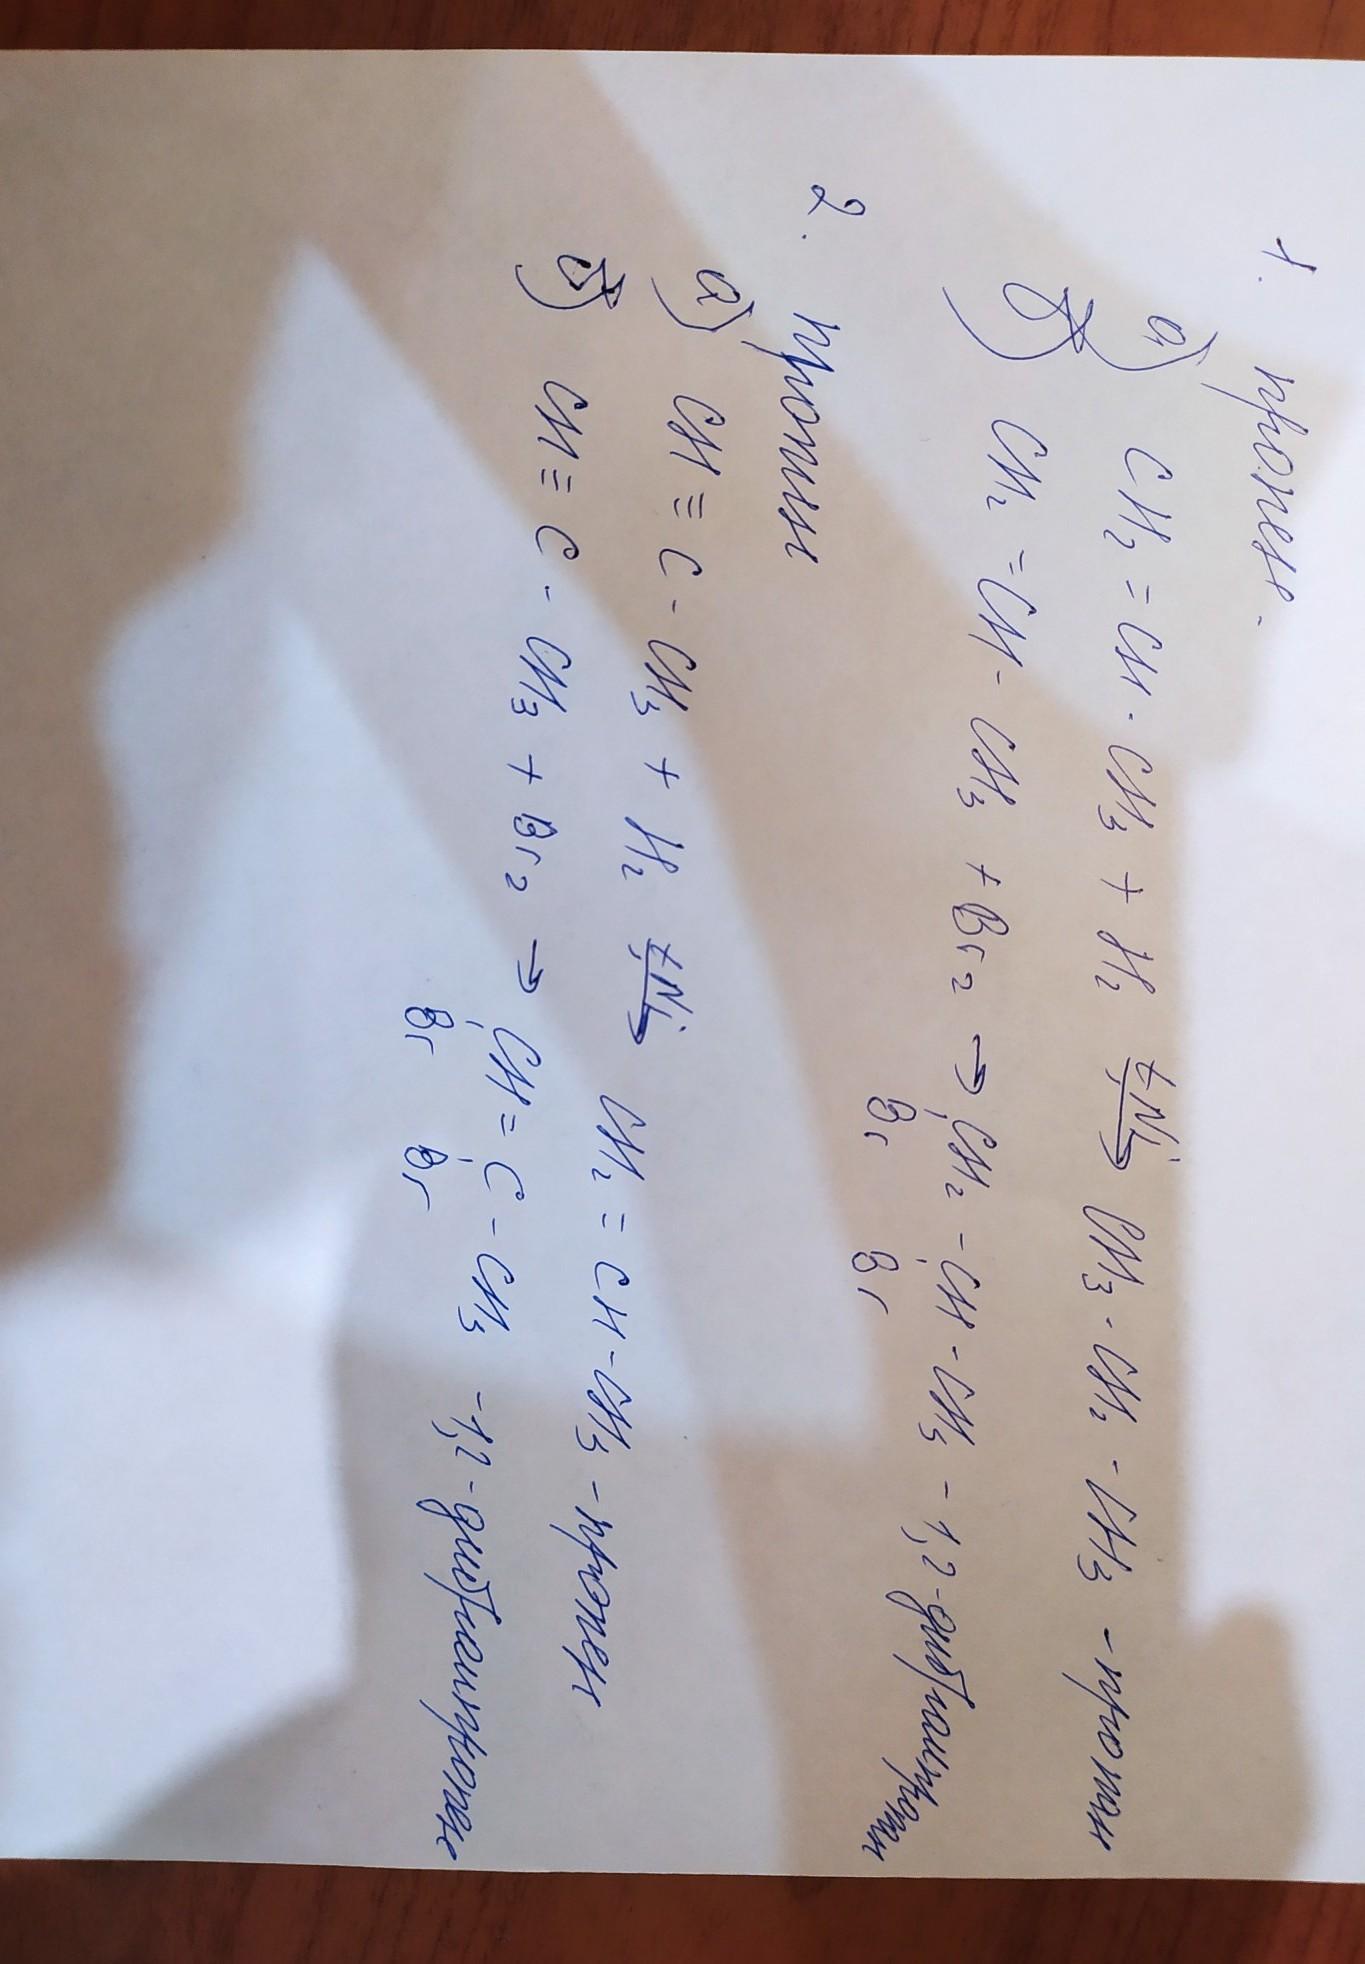 1. пропен -
а) CH2 = CH - CH3 + H2 t,Ni→ CH3 - CH2 - CH3 - пропан
б) CH2 = CH - CH3 + Br2 → CH2 - CH - CH3 - 1,2-дибромпропан
Br Br
2. пропин
а) CH ≡ C - CH3 + H2 t,Ni→ CH2 = CH - CH3 - пропен
б) CH ≡ C - CH3 + Br2 → CH = C - CH3 - 1,2-дибромпропен
Br Br